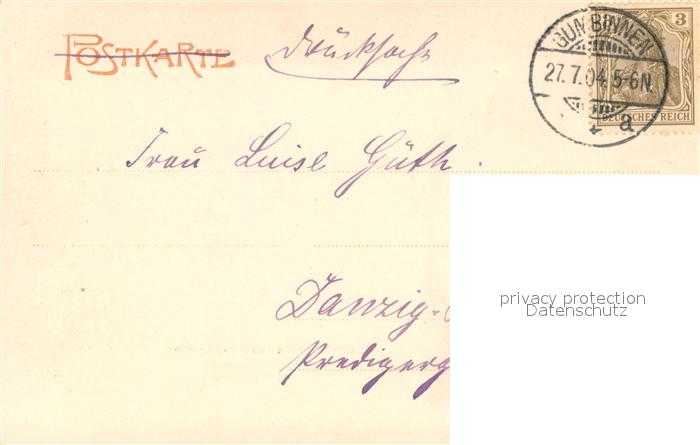 POSTKARTE Drucksache
3
GUMBINNEN
27.7.04.5-6N.
DEUTSCHES REICH
* a
Frau Luise Güth.
privacy protection
Datenschutz
Danzig-
Predigerg